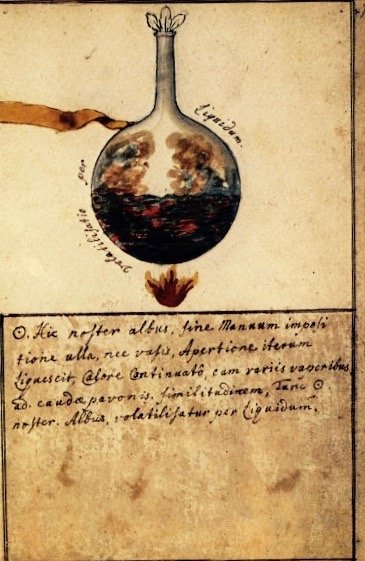 Liquidum.
volatilisatio per
☉. Hic noster albus, sine Manuum imposi
tione ulla, nec vasis, Apertione iterum
liquescit, Calore Continuatô, cum variis vaporibus
ad. caudæ pavonis. similitudinem, Tunc ☉
noster. Albus, volatilisatur per Liquidum.